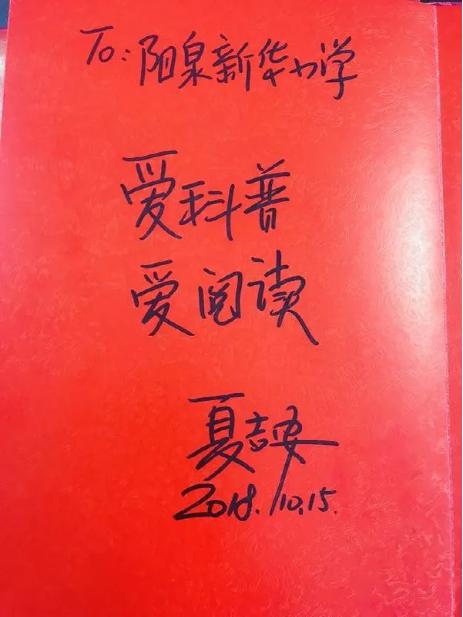 To: 阳泉新华小学
爱科普
爱阅读
夏吉安
2018.10.15.